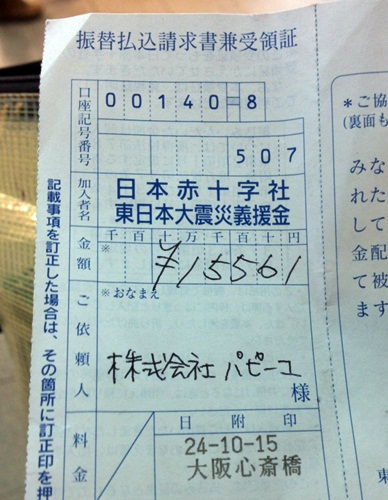 振替払込請求書兼受領証
口座記号番号
00140-8
507
加入者名
日本赤十字社
東日本大震災義援金
金額
千百十万千百十円
※
¥15561
ご依頼人
※おなまえ
株式会社 パピーユ
様
料金
日附印
24-10-15
大阪心斎橋
記載事項を訂正した場合は、その箇所に訂正印を押
*ご協
(裏面も
みな
れた
して
金配
て被
ます
東